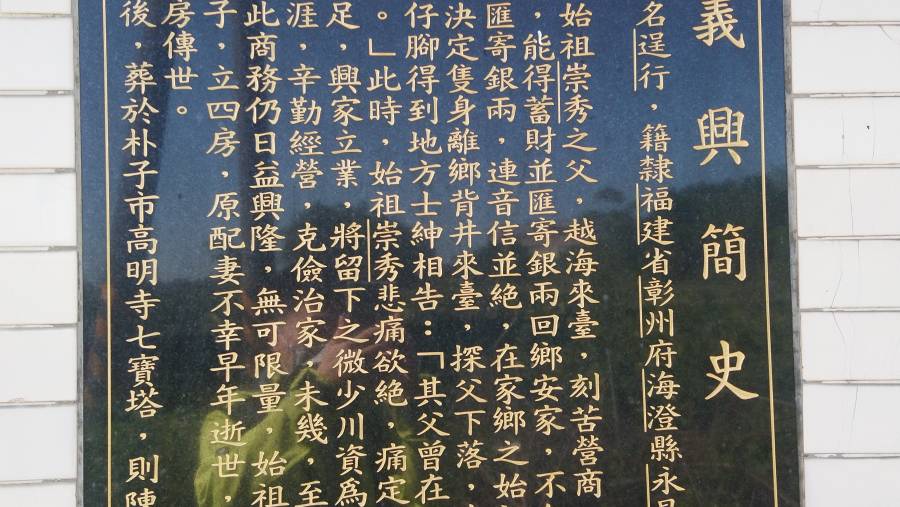 義興簡史
名逞行，籍隸福建省彰州府海澄縣永
始祖崇秀之父，越海來臺，刻苦營商
，能得蓄財並匯寄銀兩回鄉安家，不
匯寄銀兩，連音信並絕，在家鄉之始
決定隻身離鄉背井來臺，探父下落，
仔腳得到地方士紳相告：「其父曾在
。」此時，始祖崇秀悲痛欲絕，痛定
足，興家立業，將留下之微少川資為
涯，辛勤經營，克儉治家，未幾，至
此商務仍日益興隆，無可限量，始祖
子，立四房，原配妻不幸早年逝世，
房傳世。
後，葬於朴子市高明寺七寶塔，則陳